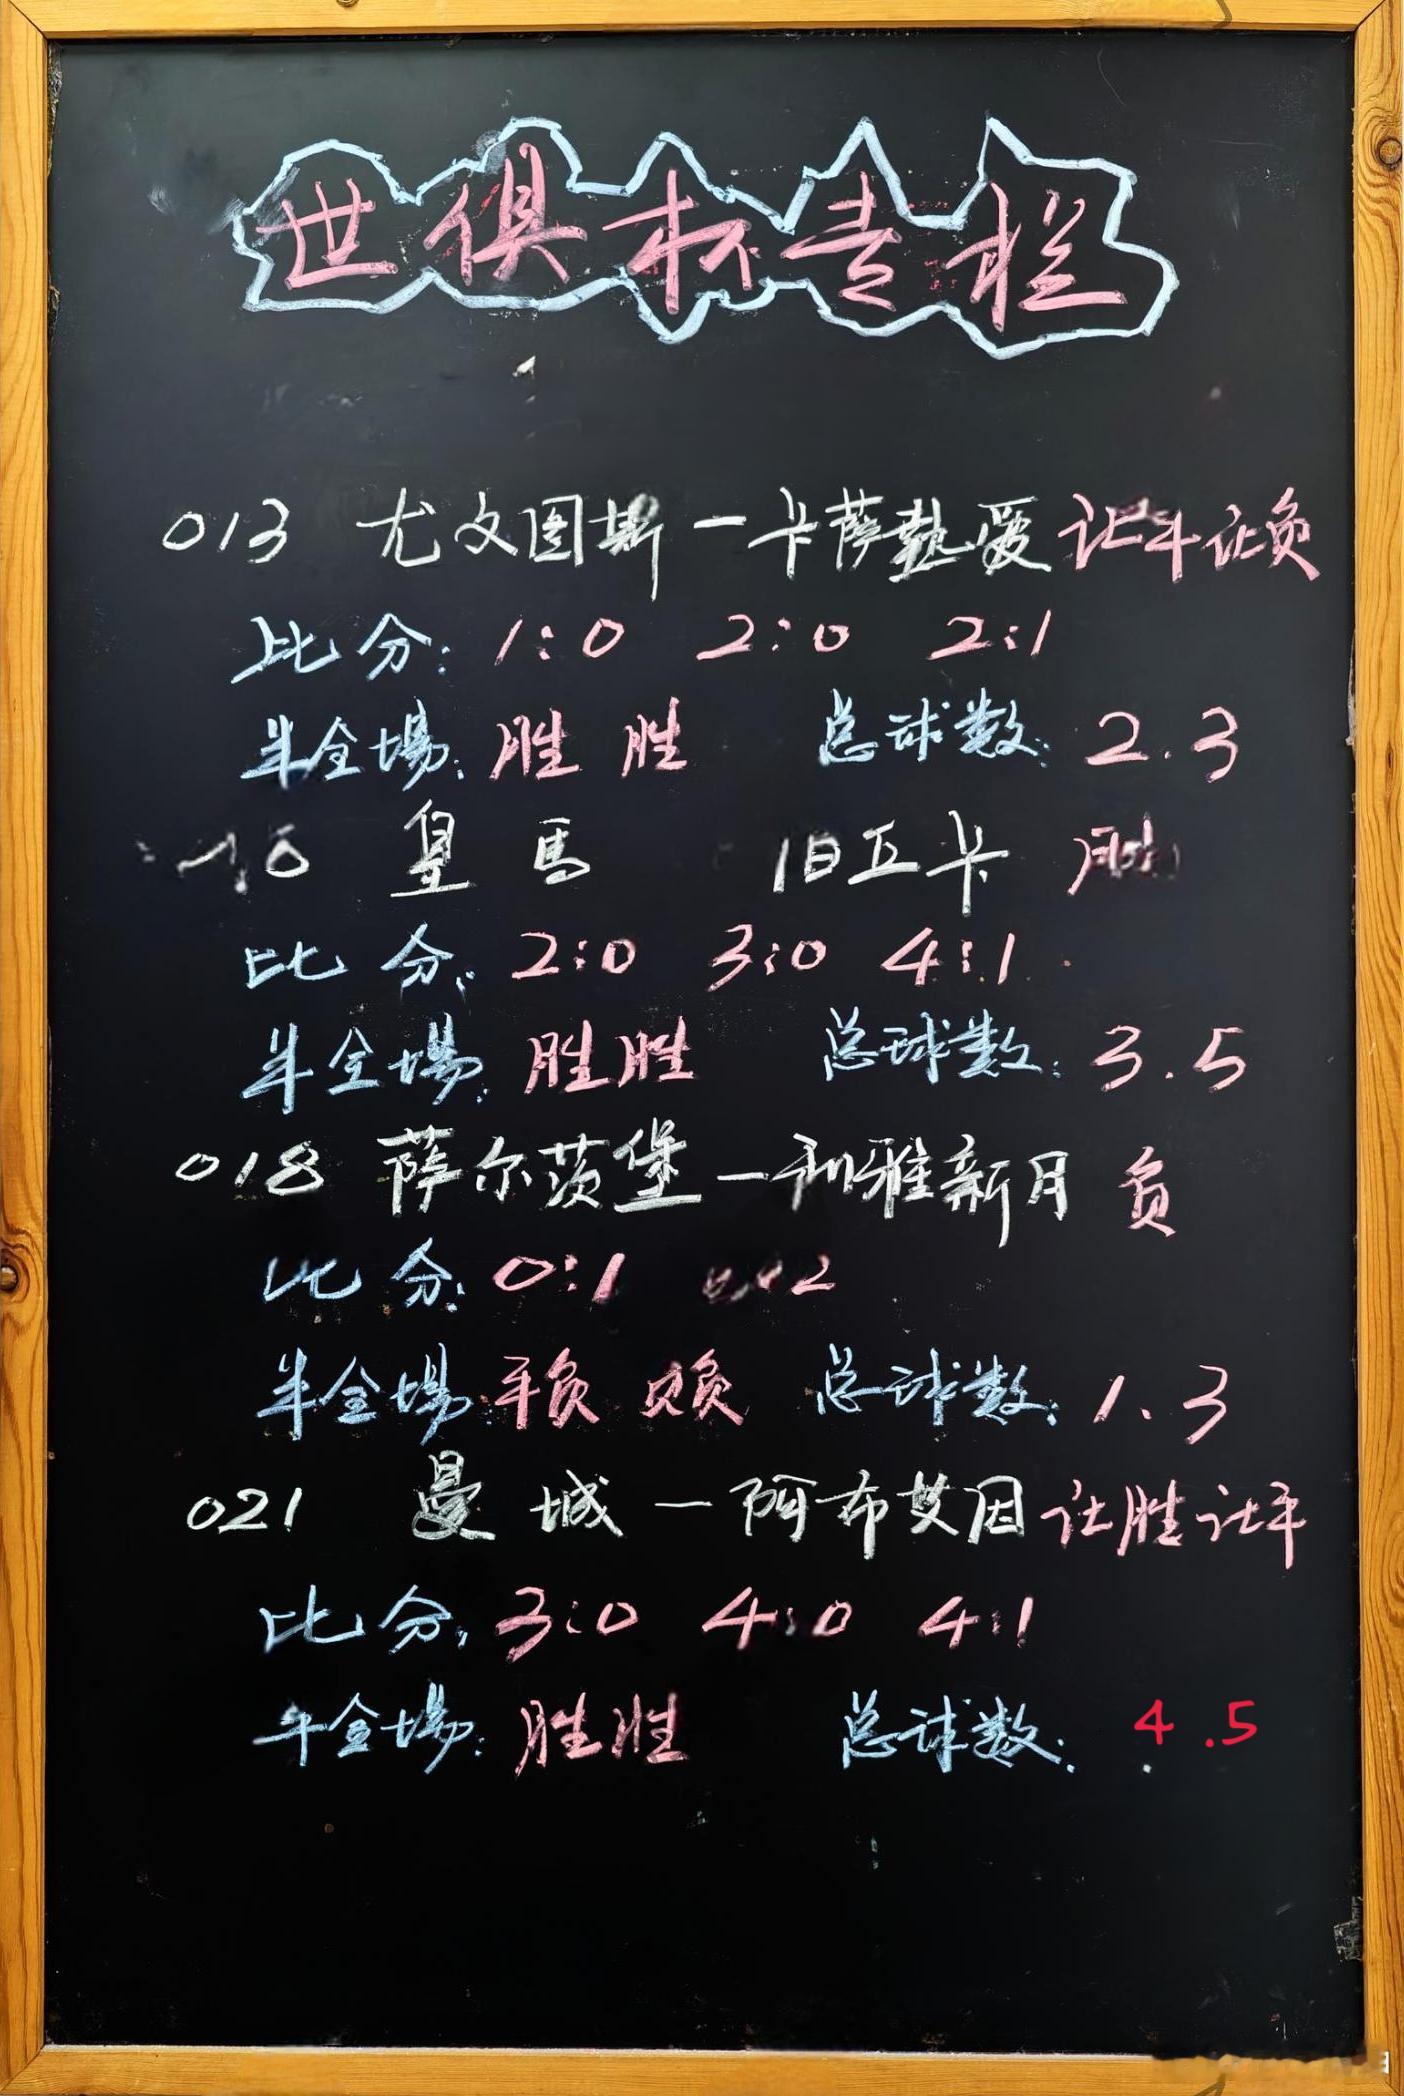 世俱杯专栏
013 尤文图斯一卡萨热爱 让平让负
比分:1:0 2:0 2:1
半全場:胜胜 总球数:2.3
皇馬 旧五卡 胜
比分:2:0 3:0 4:1
半全場:胜胜 总球数:3.5
018 萨尔茨堡一利雅新月 负
比分:0:1
半全場:平负 负负 总球数:1.3
021 曼城一阿布艾因 让胜让平
比分:3:0 4:0 4:1
半全場:胜胜 总球数:4.5